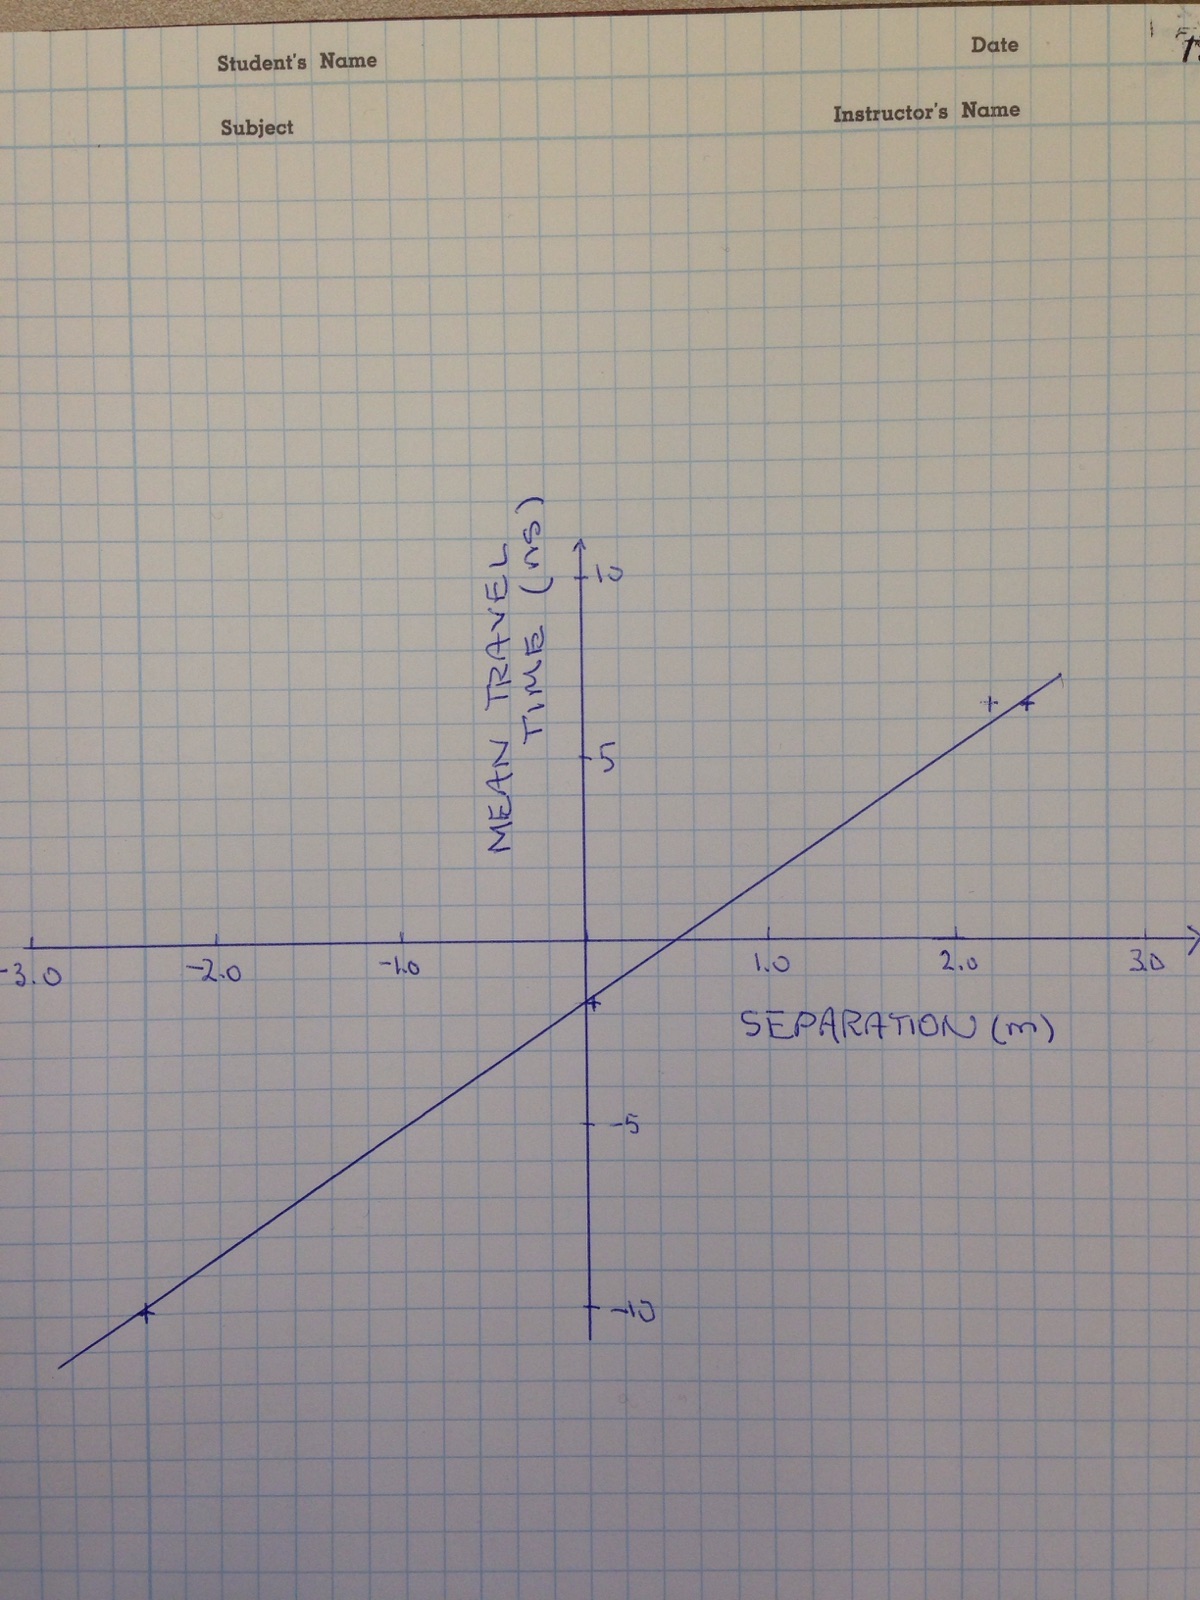 Student's Name
Date
Subject
Instructor's Name
MEAN TRAVEL
TIME (ns)
10
5
-3.0
-2.0
-1.0
1.0
2.0
3.0
SEPARATION (m)
-5
-10